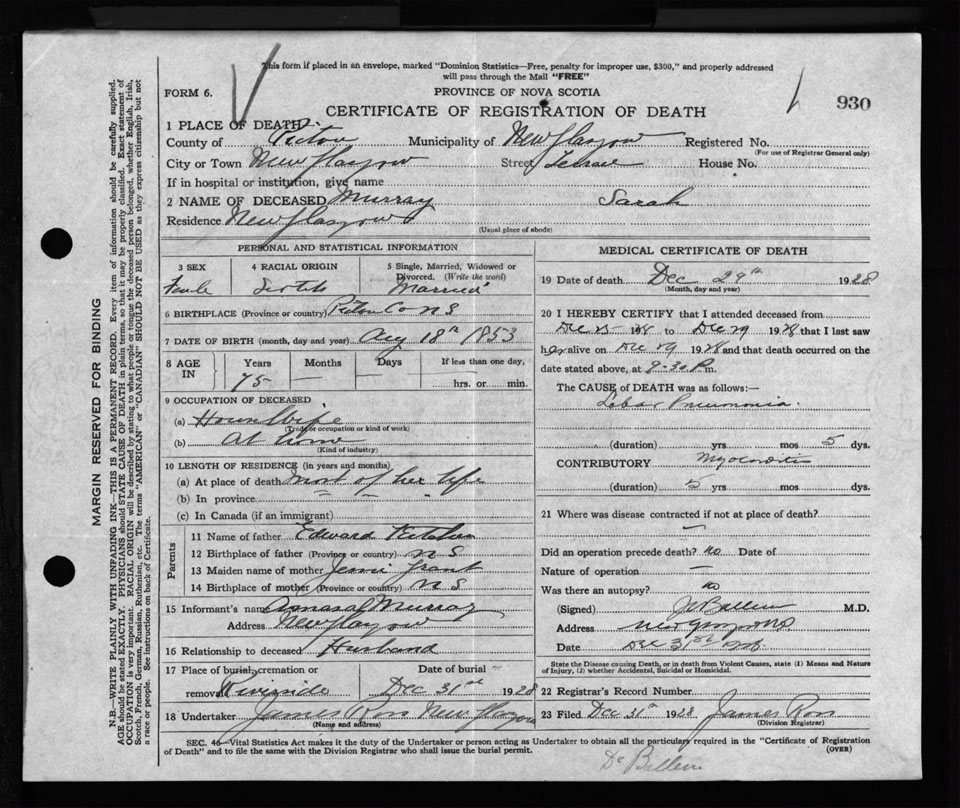 This form if placed in an envelope, marked "Dominion Statistics—Free, penalty for improper use, $300," and properly addressed
will pass through the Mail "FREE"
FORM 6.
PROVINCE OF NOVA SCOTIA
CERTIFICATE OF REGISTRATION OF DEATH
930
1 PLACE OF DEATH
County of Pictou Municipality of New Glasgow Registered No.
(For use of Registrar General only)
City or Town New Glasgow Street House No.
If in hospital or institution, give name
2 NAME OF DECEASED Murray Sarah
Residence New Glasgow
(Usual place of abode)
PERSONAL AND STATISTICAL INFORMATION
3 SEX
4 RACIAL ORIGIN
5 Single, Married, Widowed or
Divorced. (Write the word)
Female Scotch Married
6 BIRTHPLACE (Province or country) Pictou Co N S
7 DATE OF BIRTH (month, day and year) Aug 18th 1853
8 AGE
IN
Years Months Days If less than one day,
75 — — hrs. or min.
9 OCCUPATION OF DECEASED
(a) Housewife
(Trade or occupation or kind of work)
(b) At home
(Kind of industry)
10 LENGTH OF RESIDENCE (in years and months)
(a) At place of death most of her life
(b) In province
(c) In Canada (if an immigrant)
Parents
11 Name of father Edward
12 Birthplace of father (Province or country) N S
13 Maiden name of mother Jessie Grant
14 Birthplace of mother (Province or country) N S
15 Informant's name Murray
Address New Glasgow
16 Relationship to deceased Husband
17 Place of burial, cremation or
removal Riverside
Date of burial
Dec 31st 1928
18 Undertaker James Ross New Glasgow
(Name and address)
MEDICAL CERTIFICATE OF DEATH
19 Date of death Dec 29th 1928
(Month, day and year)
20 I HEREBY CERTIFY that I attended deceased from
Dec 25 1928 to Dec 29 1928 that I last saw
her alive on Dec 29 1928 and that death occurred on the
date stated above, at 9-30 P.m.
The CAUSE of DEATH was as follows:—
Lobar Pneumonia.
(duration) yrs mos 5 dys.
CONTRIBUTORY Myocarditis
(duration) 5 yrs mos dys.
21 Where was disease contracted if not at place of death?
—
Did an operation precede death? no Date of
Nature of operation —
Was there an autopsy? no
(Signed) M.D.
Address New Glasgow NS
Date Dec 31st 1928
State the Disease causing Death, or in death from Violent Causes, state (1) Means and Nature
of Injury, (2) whether Accidental, Suicidal or Homicidal.
22 Registrar's Record Number
23 Filed Dec 31st 1928 James Ross
(Division Registrar)
SEC. 46—Vital Statistics Act makes it the duty of the Undertaker or person acting as Undertaker to obtain all the particulars required in the "Certificate of Registration
of Death" and to file the same with the Division Registrar who shall issue the burial permit.
(OVER)
Dr
MARGIN RESERVED FOR BINDING
N.B.—WRITE PLAINLY WITH UNFADING INK—THIS IS A PERMANENT RECORD. Every item of information should be carefully supplied.
AGE should be stated EXACTLY. PHYSICIANS should STATE CAUSE OF DEATH in plain terms, so that it may be properly classified. Exact statement of
OCCUPATION is very important. RACIAL ORIGIN will be described by stating to what people or tongue the deceased person belonged, whether English, Irish,
Scotch, French, German, Russian, Ruthenian, etc. The terms "AMERICAN" or "CANADIAN" SHOULD NOT BE USED as they express citizenship but not
a race or people. See instructions on back of Certificate.